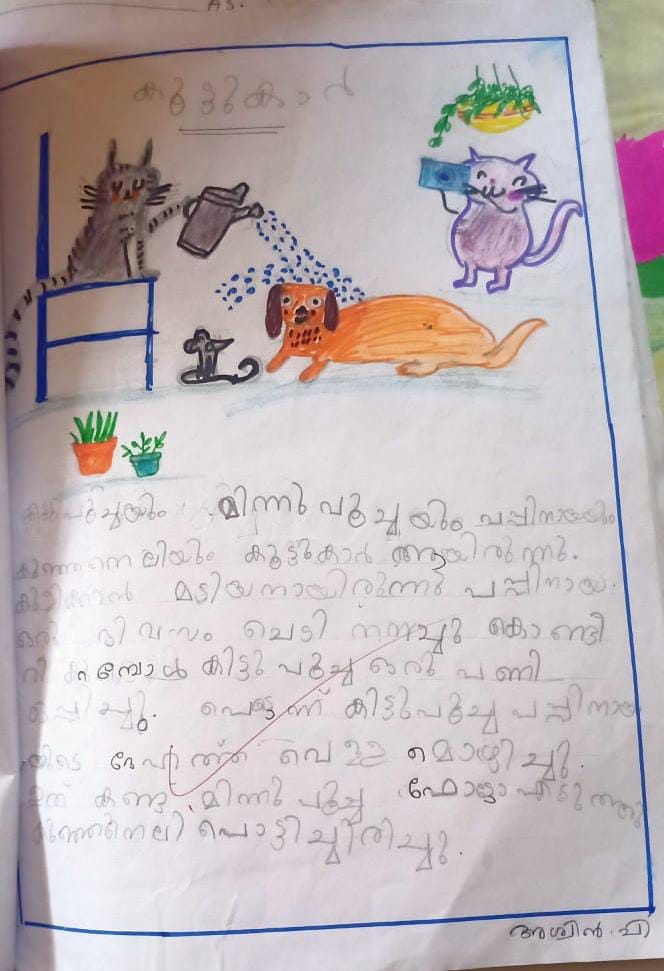 AS.
കൂട്ടുകാർ
കിട്ടുപൂച്ചയും മിന്നു പൂച്ചയും പപ്പിനായയും
കുഞ്ഞനെലിയും കൂട്ടുകാർ ആയിരുന്നു.
കുളിക്കാൻ മടിയനായിരുന്നു പപ്പിനായ.
ഒരു ദിവസം ചെടി നനച്ചു കൊണ്ടി
രിക്കുമ്പോൾ കിട്ടു പൂച്ച ഒരു പണി
ഒപ്പിച്ചു. പെട്ടെന്ന് കിട്ടുപൂച്ച പപ്പിനായ
യുടെ ദേഹത്ത് വെള്ള മൊഴിച്ചു.
ഇത് കണ്ട മിന്നു പൂച്ച ഫോട്ടോ എടുത്തു
കുഞ്ഞനെലി പൊട്ടിച്ചിരിച്ചു.
അശ്വിൻ. പി